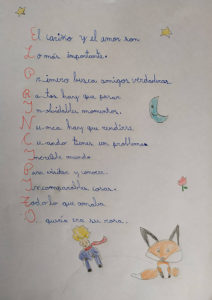 El cariño y el amor son
Lo más importante.
Primero busca amigos verdaderos
Ratos hay que pasar
Inolvidables momentos.
Nunca hay que rendirse
Cuando tienes un problema
Increíble mundo
Para visitar y conocer.
Incomparables cosas.
Todo lo que amaba
O quería era su rosa.